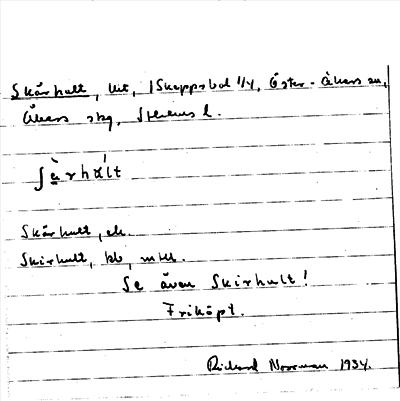 Skårhult, lht, i Skeppsbol 1/4, Öster-Åkers sn,
Åkers skg, Sthlms l.
Skårhult, ek.
Skirhult, kb, mtl.
Se även Skirhult!
Friköpt.
Rickard Norrman 1934.